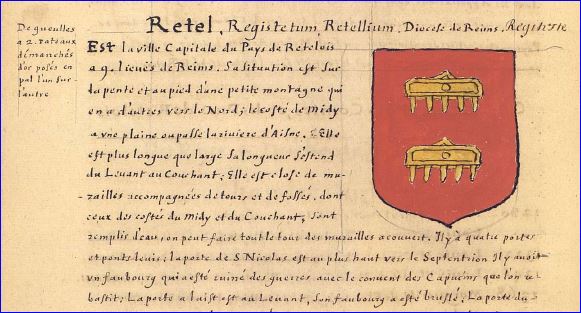 De gueulles
a 2. rateaux
démanchés
d'or posés en
pal l'un sur
l'autre
Retel, Registetum, Retellium. Diocese de Reims. Registeste
Est la ville Capitale du Pays de Retelois
a 9. lieues de Reims. Sa situation est sur
du pente et au pied d'une petite montagne qui
en a d'autres vers le Nord; le costé de Midy
a vne plaine ou passe la riviere d'Aisne. Elle
est plus longue que large sa longueur s'estend
du Levant au Couchant; Elle est close de mu-
railles accompagnées de tours et de fossés, dont
ceux des costés du Midy et du Couchant, sont
remplis d'eau, on peut faire tout le tour des murailles a couvert. Il y a quatre portes
et ponts levis; la porte de S Nicolas est au plus haut vers le Septentrion Il y avoit
vn faubourg qui a esté ruiné des guerres avec le couvent des Capucins que l'on re
bastit; La porte a l'aist est au Levant, son faubourg a esté bruslé; La porte du